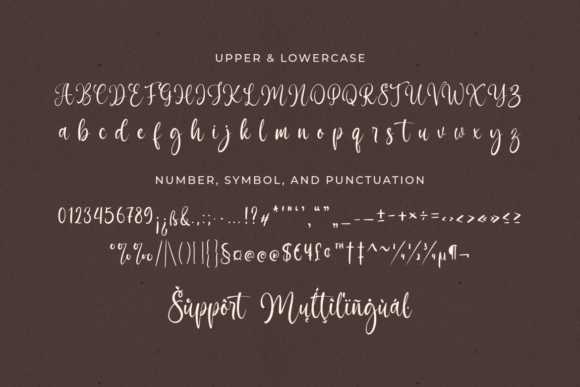 UPPER & LOWERCASE
ABCDEFGHIJKLMNOPQRSTUVWXYZ
abcdefghijklmnopqrstuvwxyz
NUMBER, SYMBOL, AND PUNCTUATION
0123456789¡¿ß&.,:;·…!?#*'"‘’,“”„_–-±-+×÷=‹›<>«»≤≥
°%‰/|\()[]{}§¤@©®$€¥£¢™†‡^~¼½¾µ¶¬